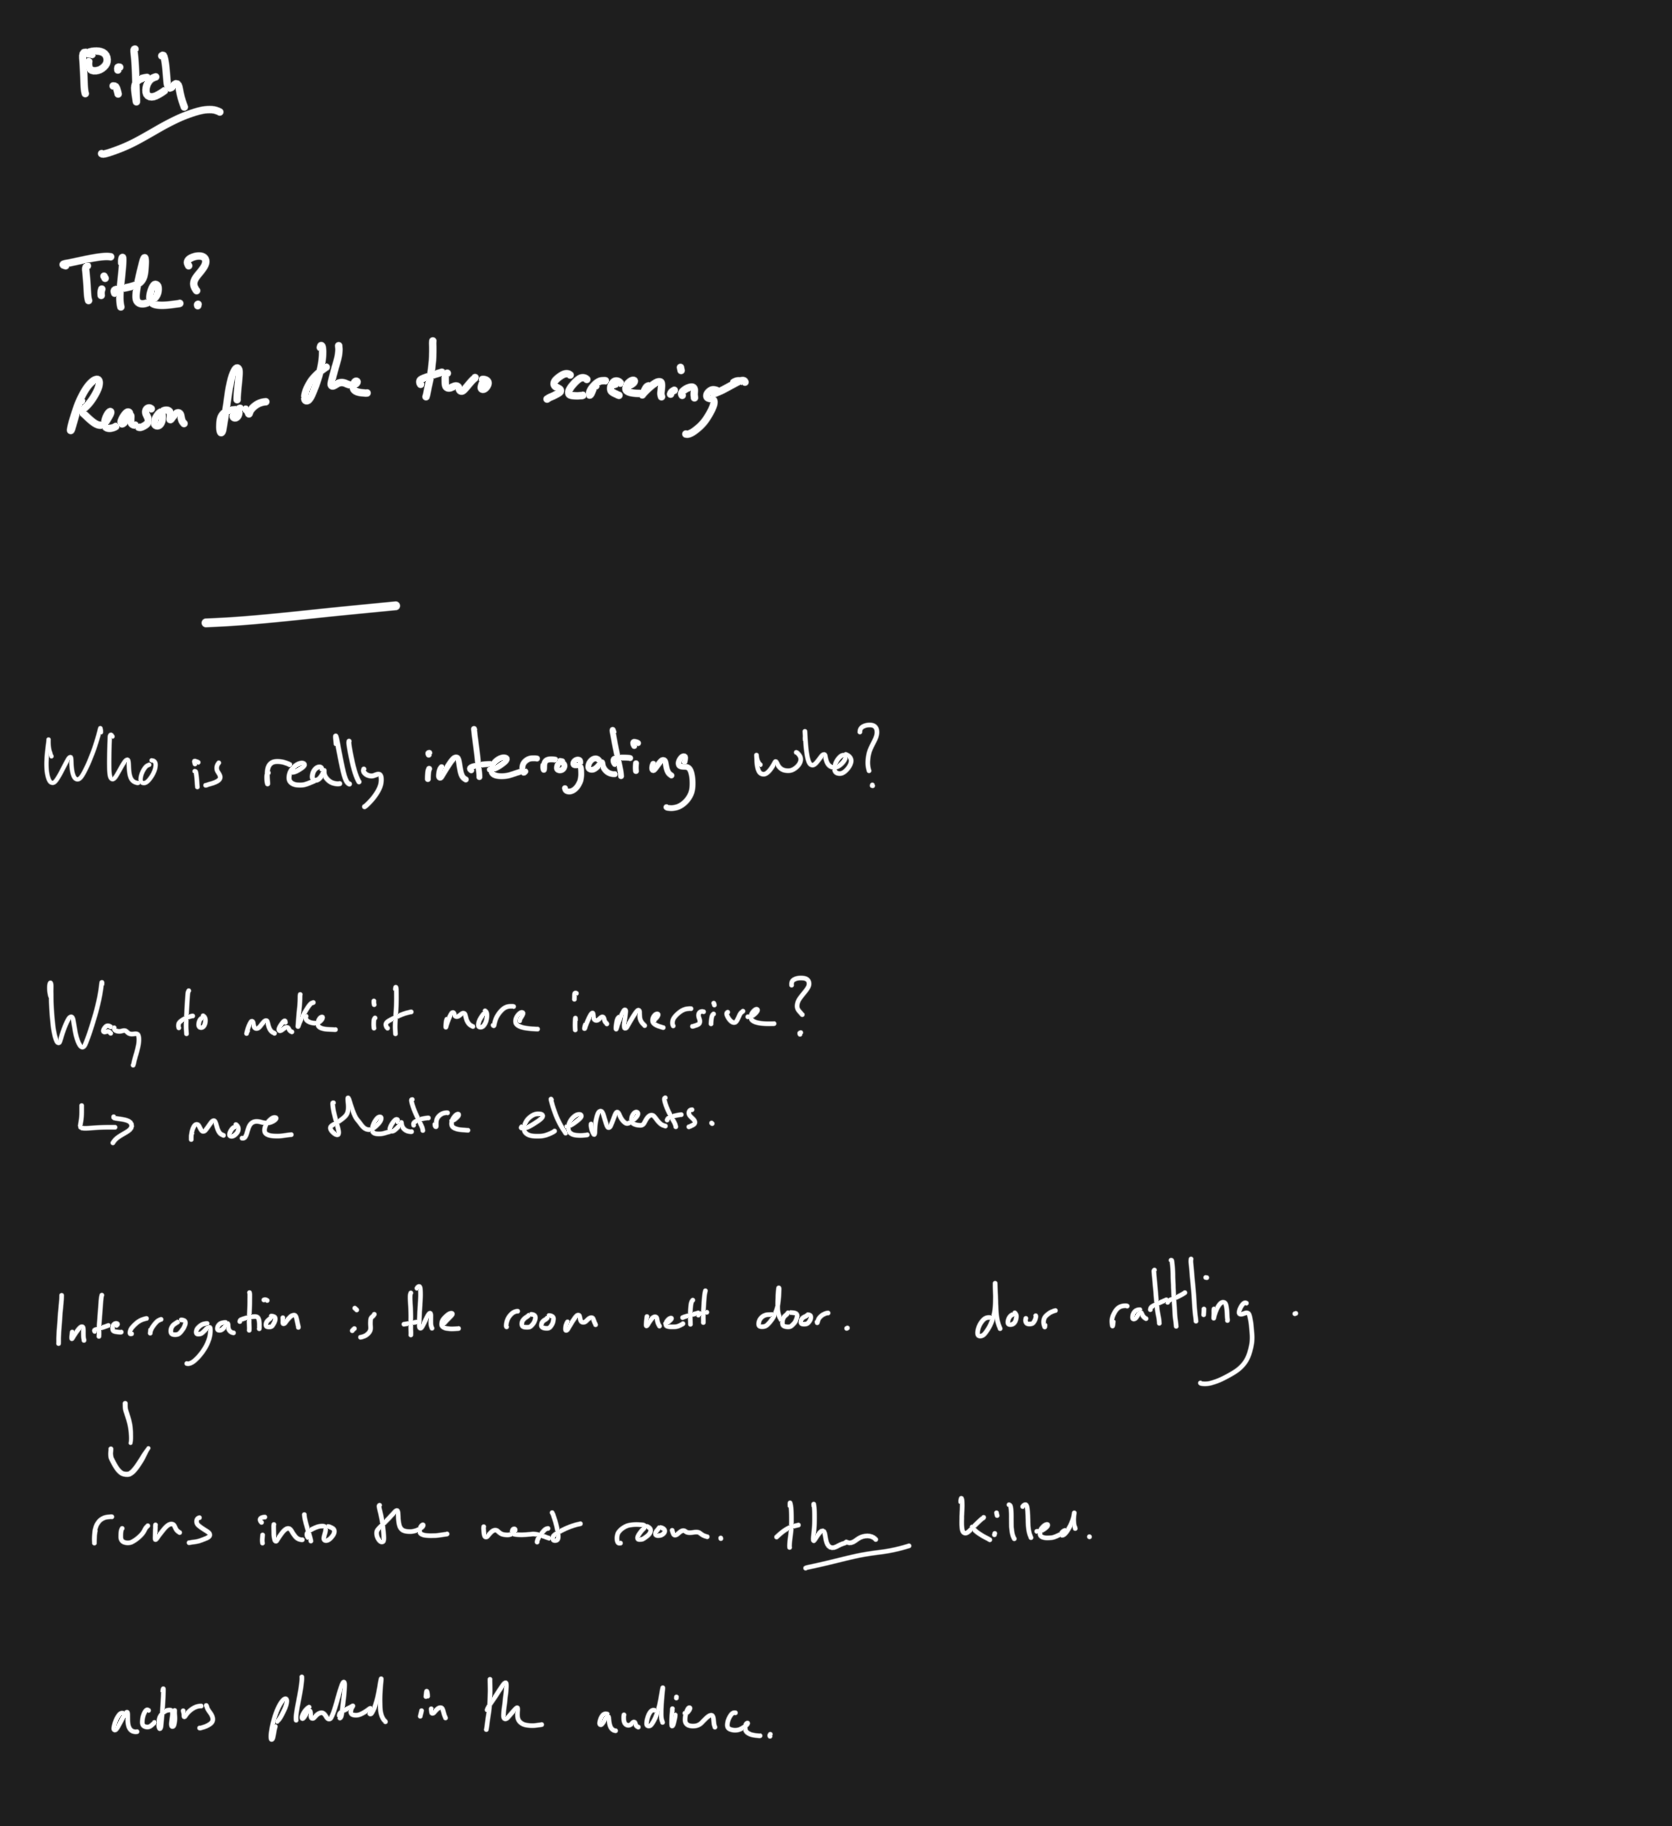 Pitch
Title?
Reason for the two screenings
Who is really interrogating who?
Way to make it more immersive?
↳ more theatre elements.
Interrogation is the room nett door. dour rattling.
↓
runs into the next room. then killed.
actors planted in the audience.